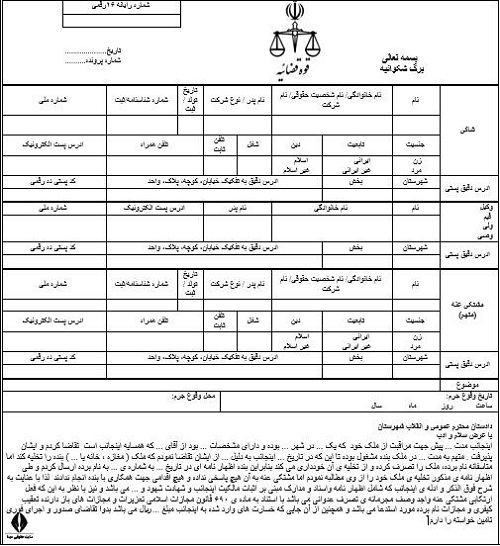 شماره رایانه ۱۶رقمی
بسمه تعالی
برگ شکوائیه
قوه قضائیه
تاریخ....................
شماره پرونده..................
شاکی
نام
نام خانوادگی/ نام شخصیت حقوقی/ نام شرکت
نام پدر / نوع شرکت
تاریخ تولد / ثبت
شماره شناسنامه/ثبت
شماره ملی
جنسیت
تابعیت
دین
شغل
تلفن ثابت
تلفن همراه
ادرس پست الکترونیک
زن
مرد
ایرانی
غیر ایرانی
اسلام
غیر اسلام
ادرس دقیق پستی
شهرستان
بخش
ادرس دقیق به تفکیک خیابان، کوچه، پلاک، واحد
کد پستی ده رقمی
وکیل
ولی
قیم
وصی
نام
نام خانوادگی
نام پدر
ادرس پست الکترونیک
شماره ملی
ادرس دقیق پستی
شهرستان
بخش
ادرس دقیق به تفکیک خیابان، کوچه، پلاک، واحد
کد پستی ده رقمی
مشتکی عنه
(متهم)
نام
نام خانوادگی/ نام شخصیت حقوقی/ نام شرکت
نام پدر / نوع شرکت
تاریخ تولد / ثبت
شماره شناسنامه/ثبت
شماره ملی
جنسیت
تابعیت
دین
شغل
تلفن ثابت
تلفن همراه
ادرس پست الکترونیک
زن
مرد
ایرانی
غیر ایرانی
اسلام
غیر اسلام
ادرس دقیق پستی
شهرستان
بخش
ادرس دقیق به تفکیک خیابان، کوچه، پلاک، واحد
کد پستی ده رقمی
موضوع
تاریخ وقوع جرم:
محل وقوع جرم:
ساعت روز ماه سال
دادستان محترم عمومی و انقلاب شهرستان
با عرض سلام و ادب
اینجانب مدت ... پیش جهت مراقبت از ملک خود که یک ... در شهر ... بوده و دارای مشخصات ... بود از آقای ... که همسایه اینجانب است تقاضا کردم و ایشان
پذیرفت . متهم به مدت ... در ملک بنده مشغول بوده تا این که در تاریخ ... اینجانب به دلیل ... از ایشان تقاضا نمودم که ملک ( مغازه ، خانه یا ... ) بنده را تخلیه کند اما
متاسفانه نام برده، ملک را تصرف کرده و از تخلیه ی آن خودداری می کند بنابراین بنده اظهار نامه ای در تاریخ ... به شماره ی ... به نام برده ارسال کردم و طی
اظهار نامه ی مذکور تخلیه ی ملک خود را از وی مطالبه نمودم اما مشتکی عنه به آن هیچ پاسخی نداده و هیچ اقدامی جهت همکاری با بنده انجام ندادند لذا با عنایت به
شرح فوق الذکر و ادله ی اینجانب که شامل اظهار نامه واسناد و مدارک مبنی بر اثبات مالکیت اینجانب و شهادت شهود و ... می باشد و نیز با نظر به این که فعل
ارتکابی مشتکی عنه واجد وصف مجرمانه ی تصرف عدوانی می باشد با استناد به ماده ی ۶۹۰ قانون مجازات اسلامی تعزیرات و مجازات های باز دارنده تعقیب
کیفری و مجازات نام برده مورد استدعا می باشد و همچنین از آن جایی که خسارت های وارد شده به اینجانب مبلغ ...ریال می باشد بدوا تقاضای صدور و اجرای فوری
تامین خواسته را دارم